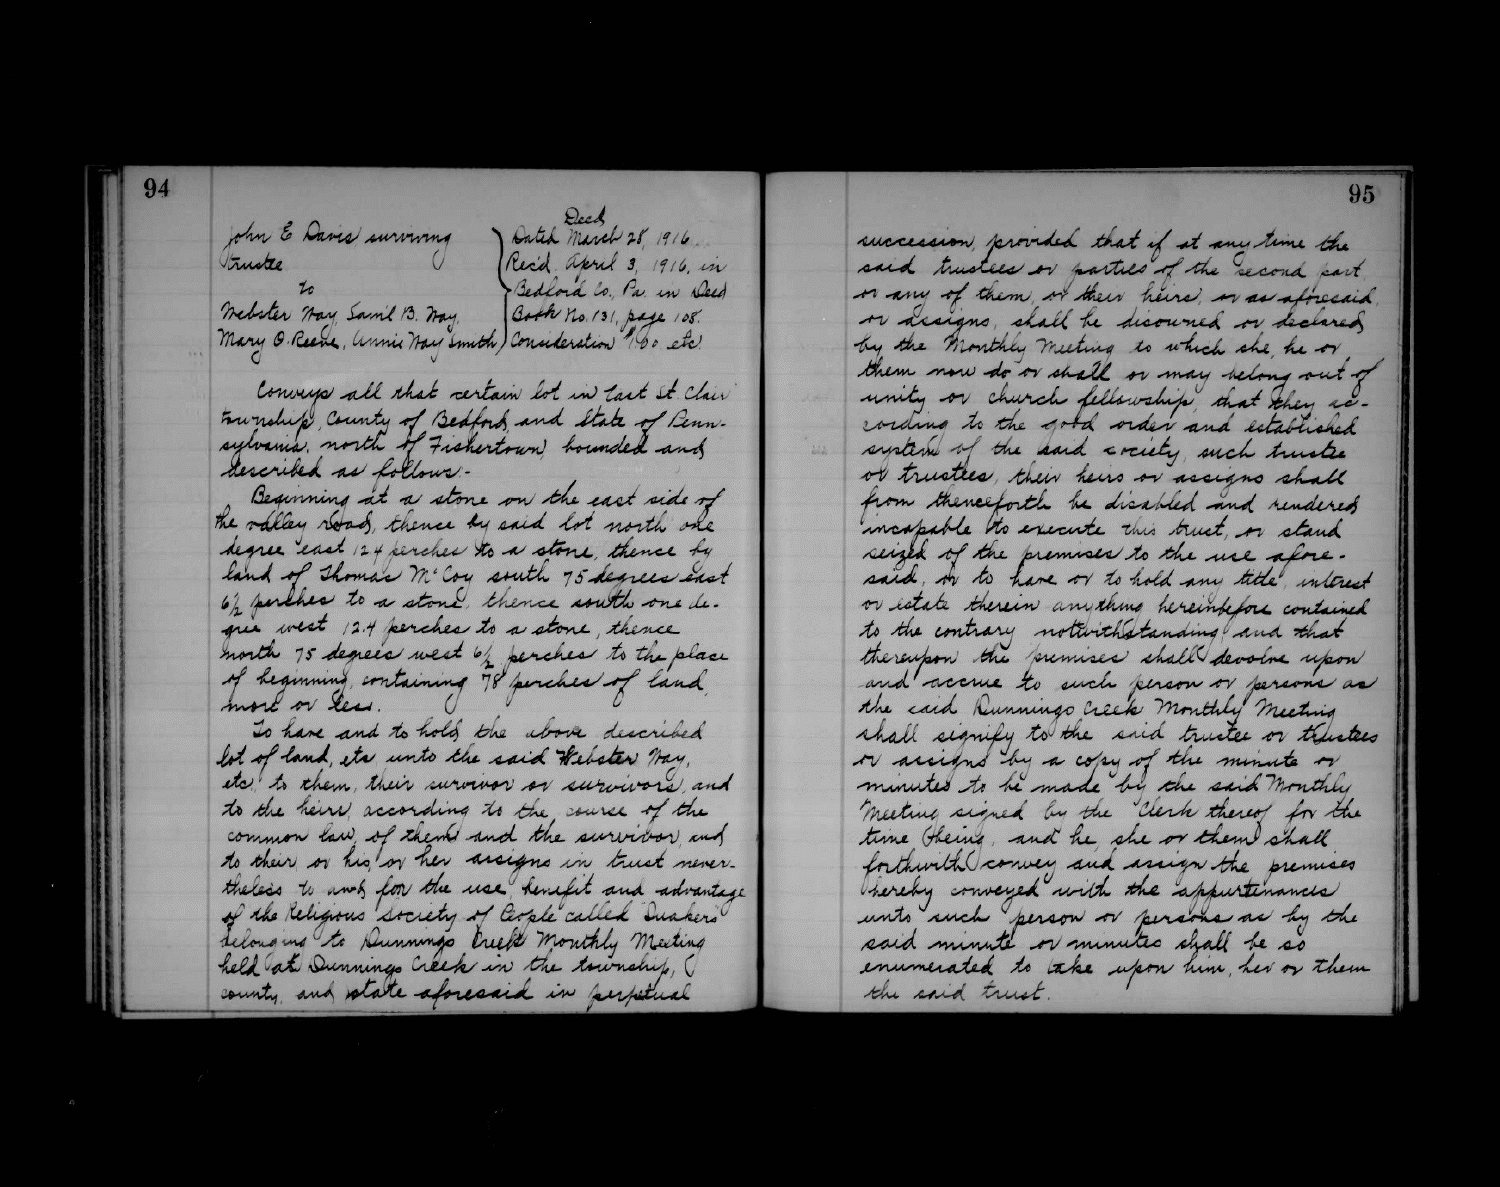 94
Deed
John E Davis surviving
trustee
to
Webster Way, Saml B. Way,
Mary O. Reeve, Annie Way Smith
Dated March 28, 1916
Rec'd. April 3, 1916, in
Bedford Co., Pa. in Deed
Book No. 131, page 108.
Consideration 1.00 etc
Conveys all that certain lot in East St. Clair
township, County of Bedford, and State of Penn-
sylvania, north of Fishertown, bounded and
described as follows:-
Beginning at a stone on the east side of
the valley road, thence by said lot north one
degree east 12.4 perches to a stone, thence by
land of Thomas McCoy south 75 degrees east
6½ perches to a stone, thence south one de-
gree west 12.4 perches to a stone, thence
north 75 degrees west 6½ perches to the place
of beginning, containing 78 perches of land,
more or less.
To have and to hold, the above described
lot of land, etc unto the said Webster Way,
etc. to them, their survivor or survivors, and
to the heirs, according to the course of the
common law, of them and the survivor, and
to their, or his, or her assigns in trust never-
theless to and for the use, benefit and advantage
of the Religious Society of People called "Quakers"
belonging to Dunnings Creek Monthly Meeting
held at Dunnings Creek in the township,
county, and state aforesaid in perpetual
95
succession, provided that if at any time the
said trustees or parties of the second part,
or any of them, or their heirs, or as aforesaid,
or assigns, shall be disowned or declared
by the Monthly Meeting to which she, he or
them now do or shall or may belong out of
unity or church fellowship, that they ac-
cording to the good order and established
system of the said society, such trustee
or trustees, their heirs or assigns shall
from thenceforth be disabled and rendered
incapable to execute this trust, or stand
seized of the premises to the use afore-
said, or to have or to hold any title, interest
or estate therein anything hereinbefore contained
to the contrary notwithstanding and that
thereupon the premises shall devolve upon
and accrue to such person or persons as
the said Dunnings Creek Monthly Meeting
shall signify to the said trustee or trustees
or assigns by a copy of the minute or
minutes to be made by the said Monthly
Meeting signed by the Clerk thereof for the
time being, and he, she or them shall
forthwith convey and assign the premises
hereby conveyed with the appurtenances
unto such person or persons as by the
said minute or minutes shall be so
enumerated to take upon him, her or them
the said trust.